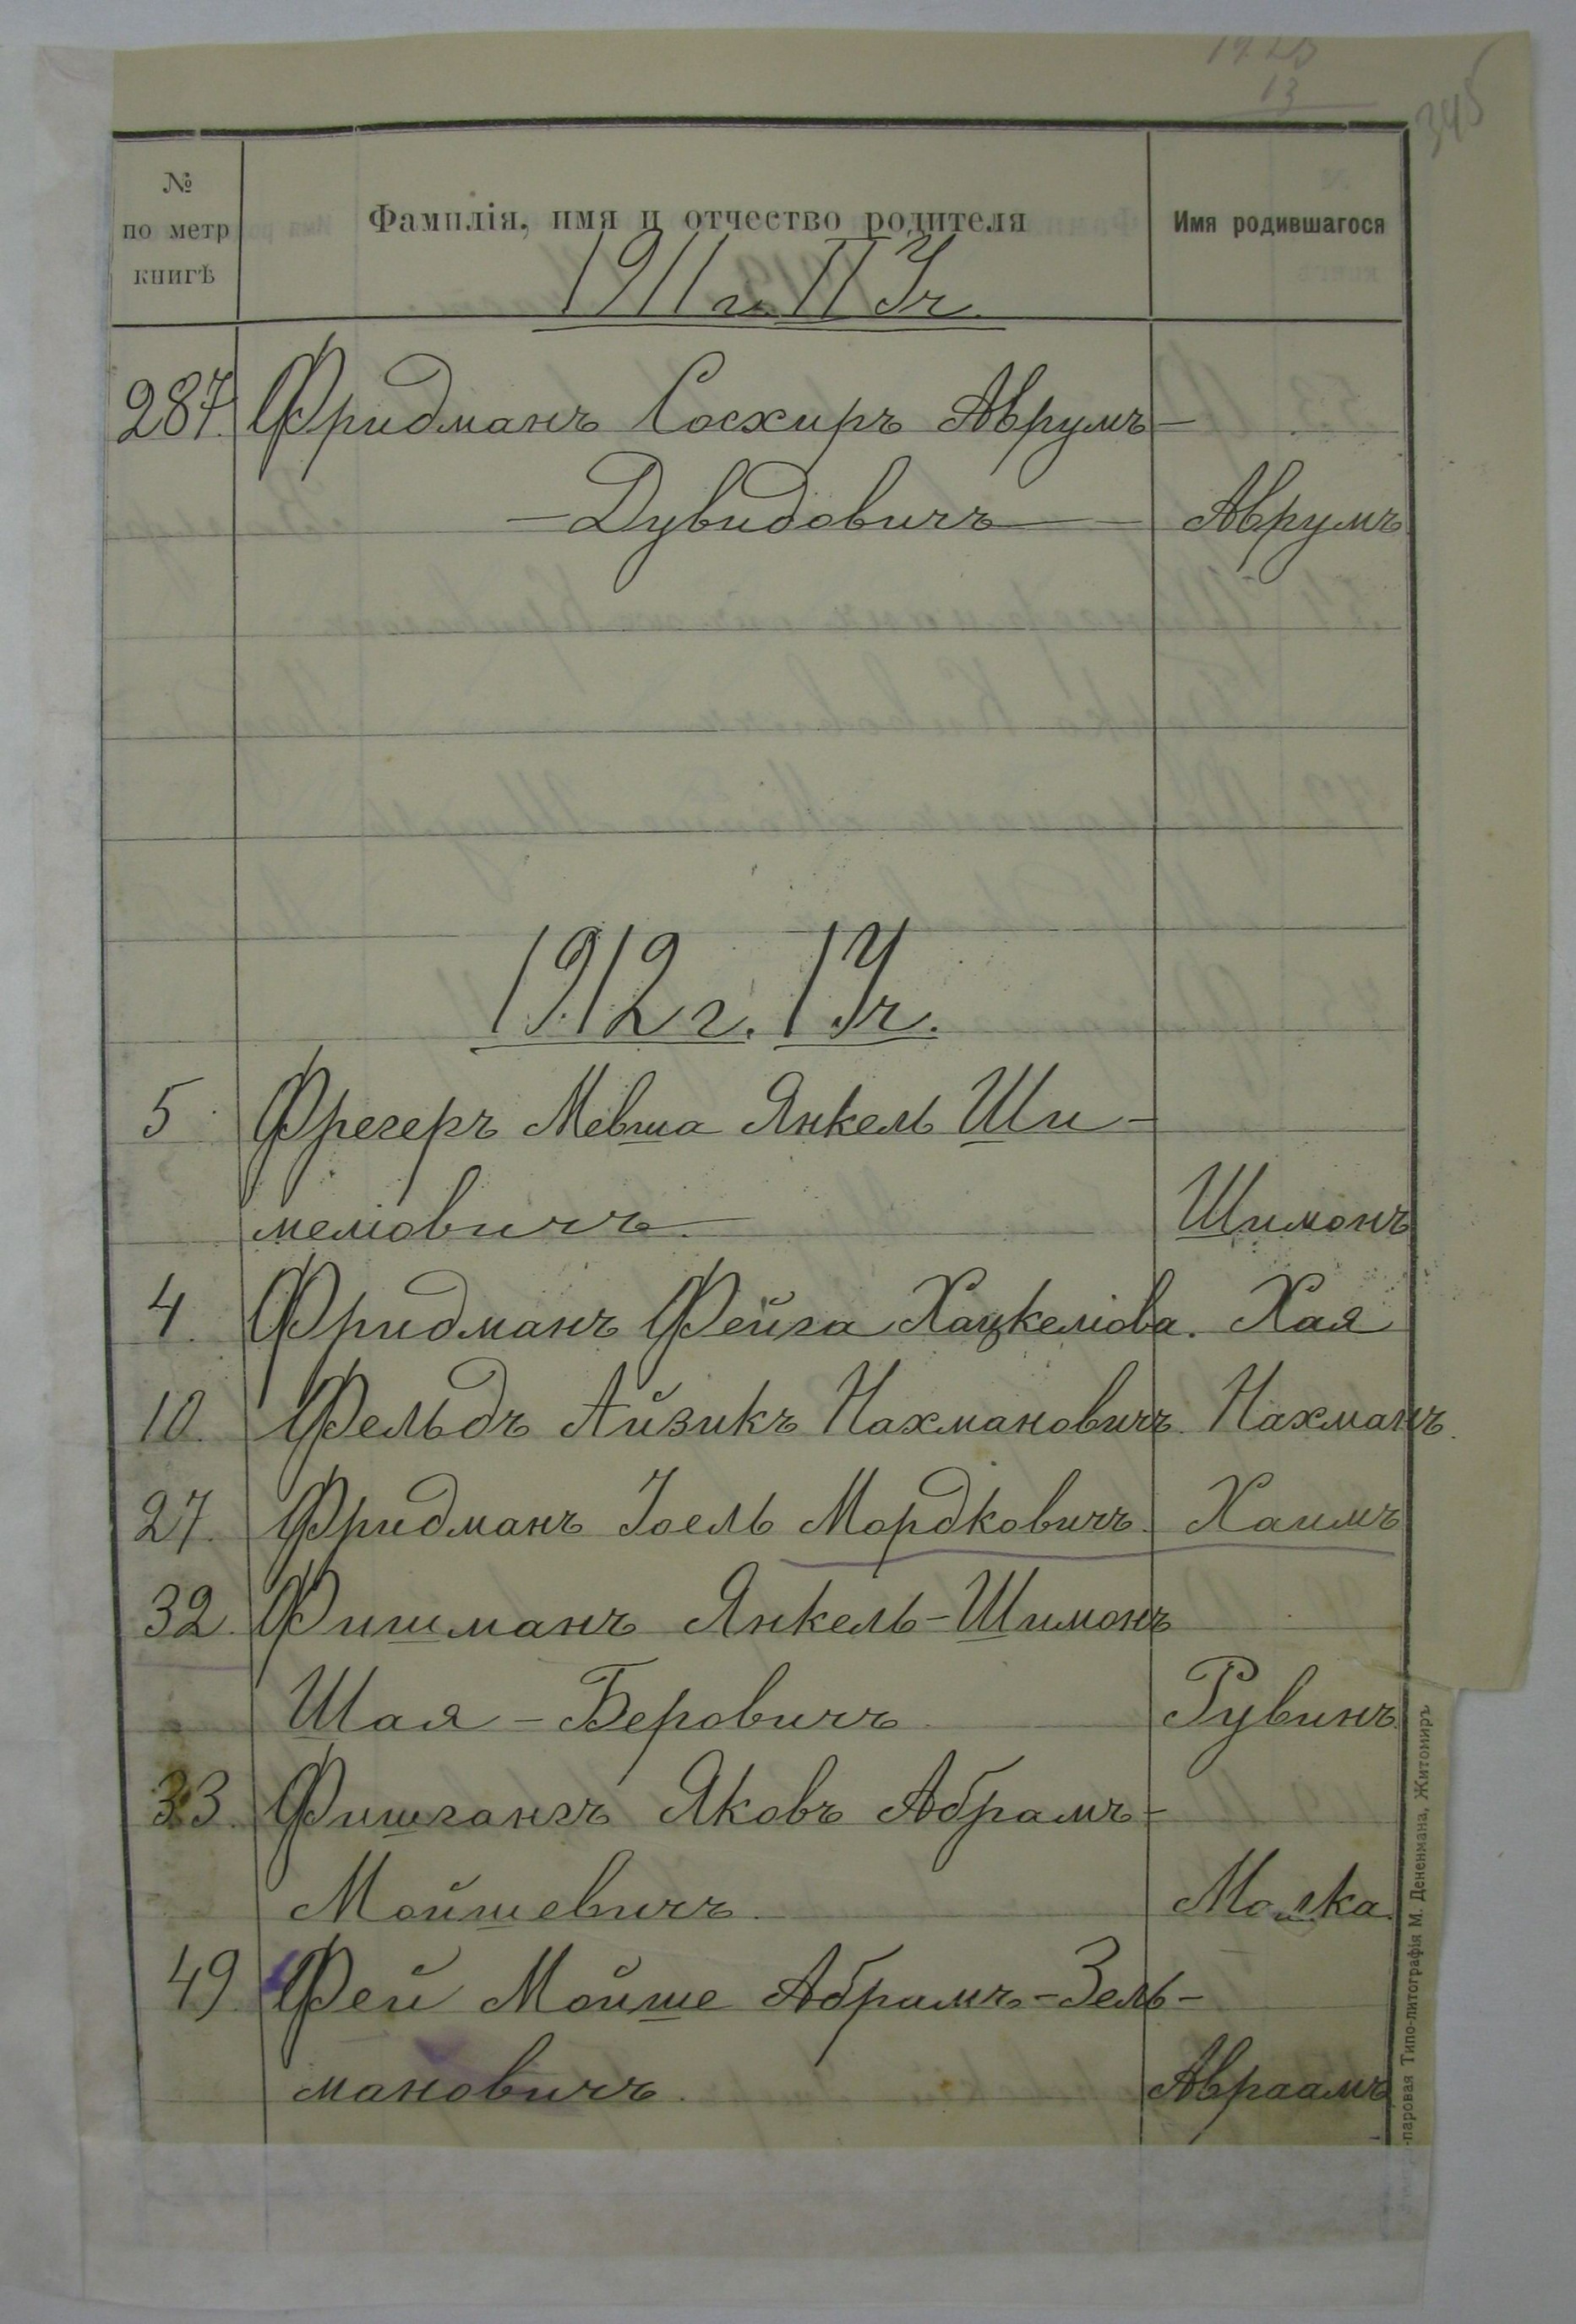 13
345
№ по метр книгѣ
Фамилія, имя и отчество родителя
Имя родившагося
1911 г. II Уч.
287. Фридманъ Сосхиръ Аврумъ-
-Дувидовичъ Аврумъ
1912 г. I Уч.
5 Фрегеръ Мевша Янкель Ши-
меліовичъ. Шимонъ
4. Фридманъ Фейга Хацкеліова. Хая
10. Фельдъ Айзикъ Нахмановичъ. Нахманъ.
27. Фридманъ Іоель Мордковичъ. Хаимъ
32. Фишманъ Янкель-Шимонъ
Шая-Беровичъ Рувинъ.
33. Фишгангъ Яковъ Абрамъ-
Мойшевичъ. Малка.
49. Фей Мойше Абрамъ-Зель-
мановичъ. Авраамъ
паровая Типо-литографія М. Дененмана, Житомиръ